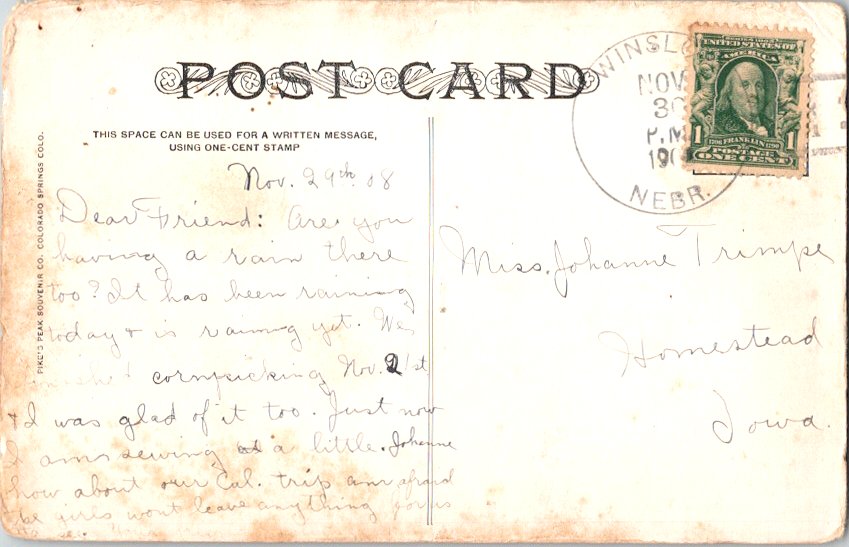 POST CARD
THIS SPACE CAN BE USED FOR A WRITTEN MESSAGE,
USING ONE-CENT STAMP
PIKE'S PEAK SOUVENIR CO. COLORADO SPRINGS COLO.
WINSLOW
NOV
30
P.M
190
NEBR.
SERIES 1902
UNITED STATES OF
AMERICA
1706 FRANKLIN 1790
1 1
POSTAGE
ONE CENT
Nov. 29th 08
Dear Friend: Are you
having a rain there
too? It has been raining
today & is raining yet. We
cornpicking Nov. 21st
& I was glad of it too. Just now
I am sewing a little. Johanne
how about our Cal. trip am afraid
girls wont leave anything for us
to see
Miss. Johanne Trimpe
Homestead
Iowa.